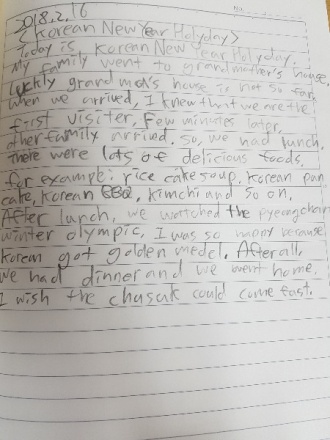 2018.2.16
<Korean New Year Holyday>
Today is Korean New Year Holyday.
My family went to grandmother's house,
Luckly grand mom's house is not so far,
When we arrived, I knew that we are the
first visiter, Few minutes later,
other family arrived. So, we had lunch,
There were lots of delicious foods,
for example: rice cake soup, korean pan
cake, korean BBQ, kimchi and so on,
After lunch, we watched the pyeongchang
winter olympic, I was so happy because
korean got golden medel, After all,
we had dinner and we went home,
I wish the chusuk could come fast.